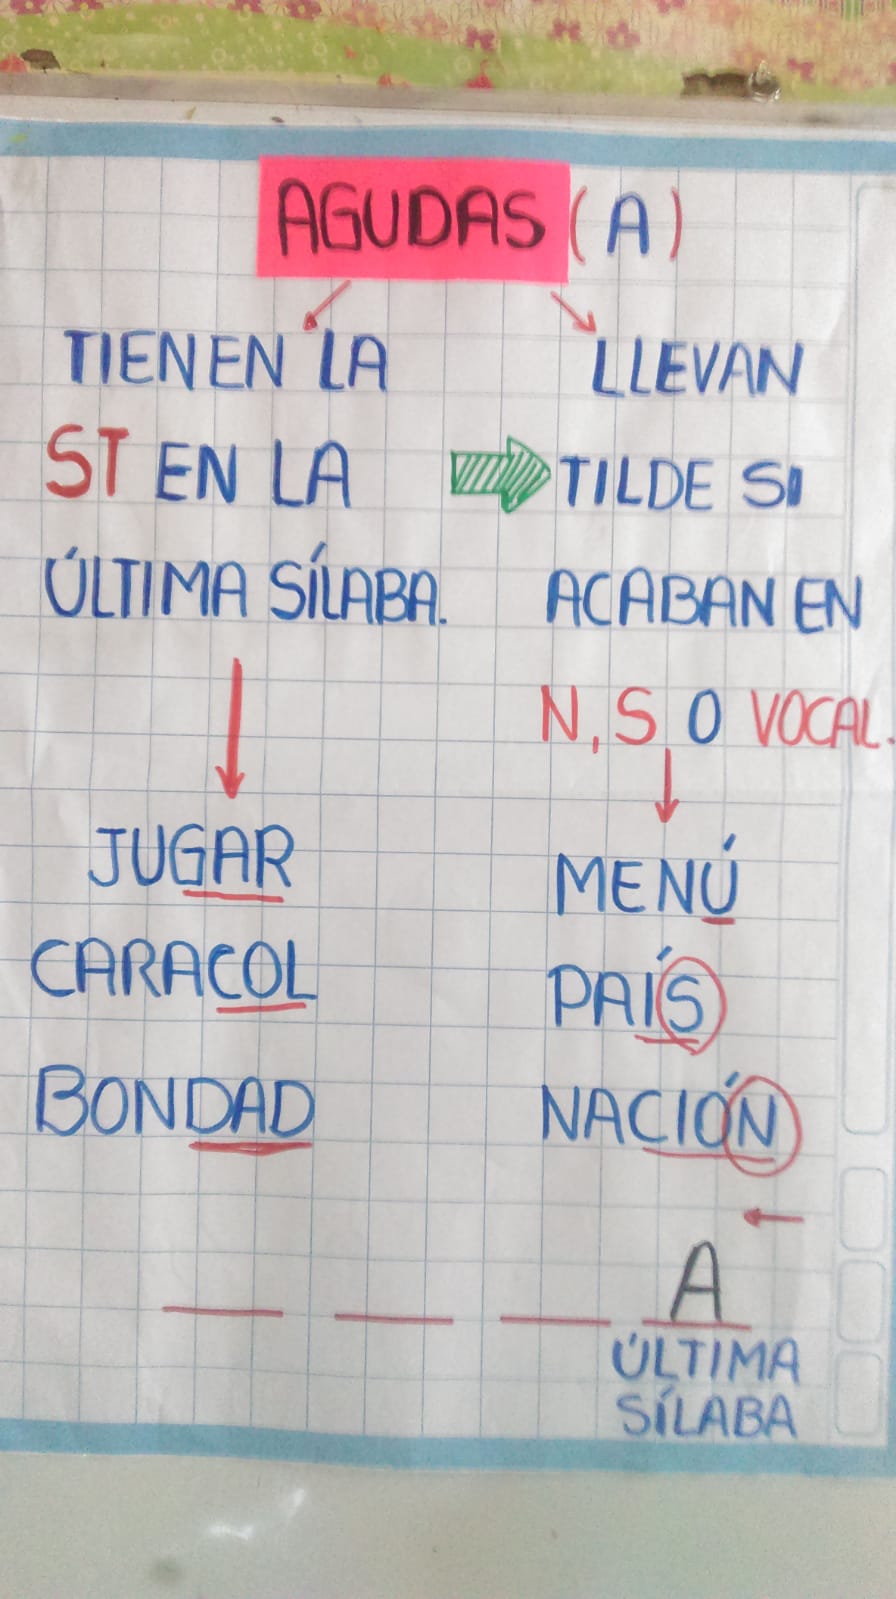 AGUDAS (A)
TIENEN LA
ST EN LA
ÚLTIMA SÍLABA.
JUGAR
CARACOL
BONDAD
LLEVAN
TILDE SI
ACABAN EN
N, S, O VOCAL.
MENÚ
PAÍS
NACIÓN
A
ÚLTIMA
SÍLABA